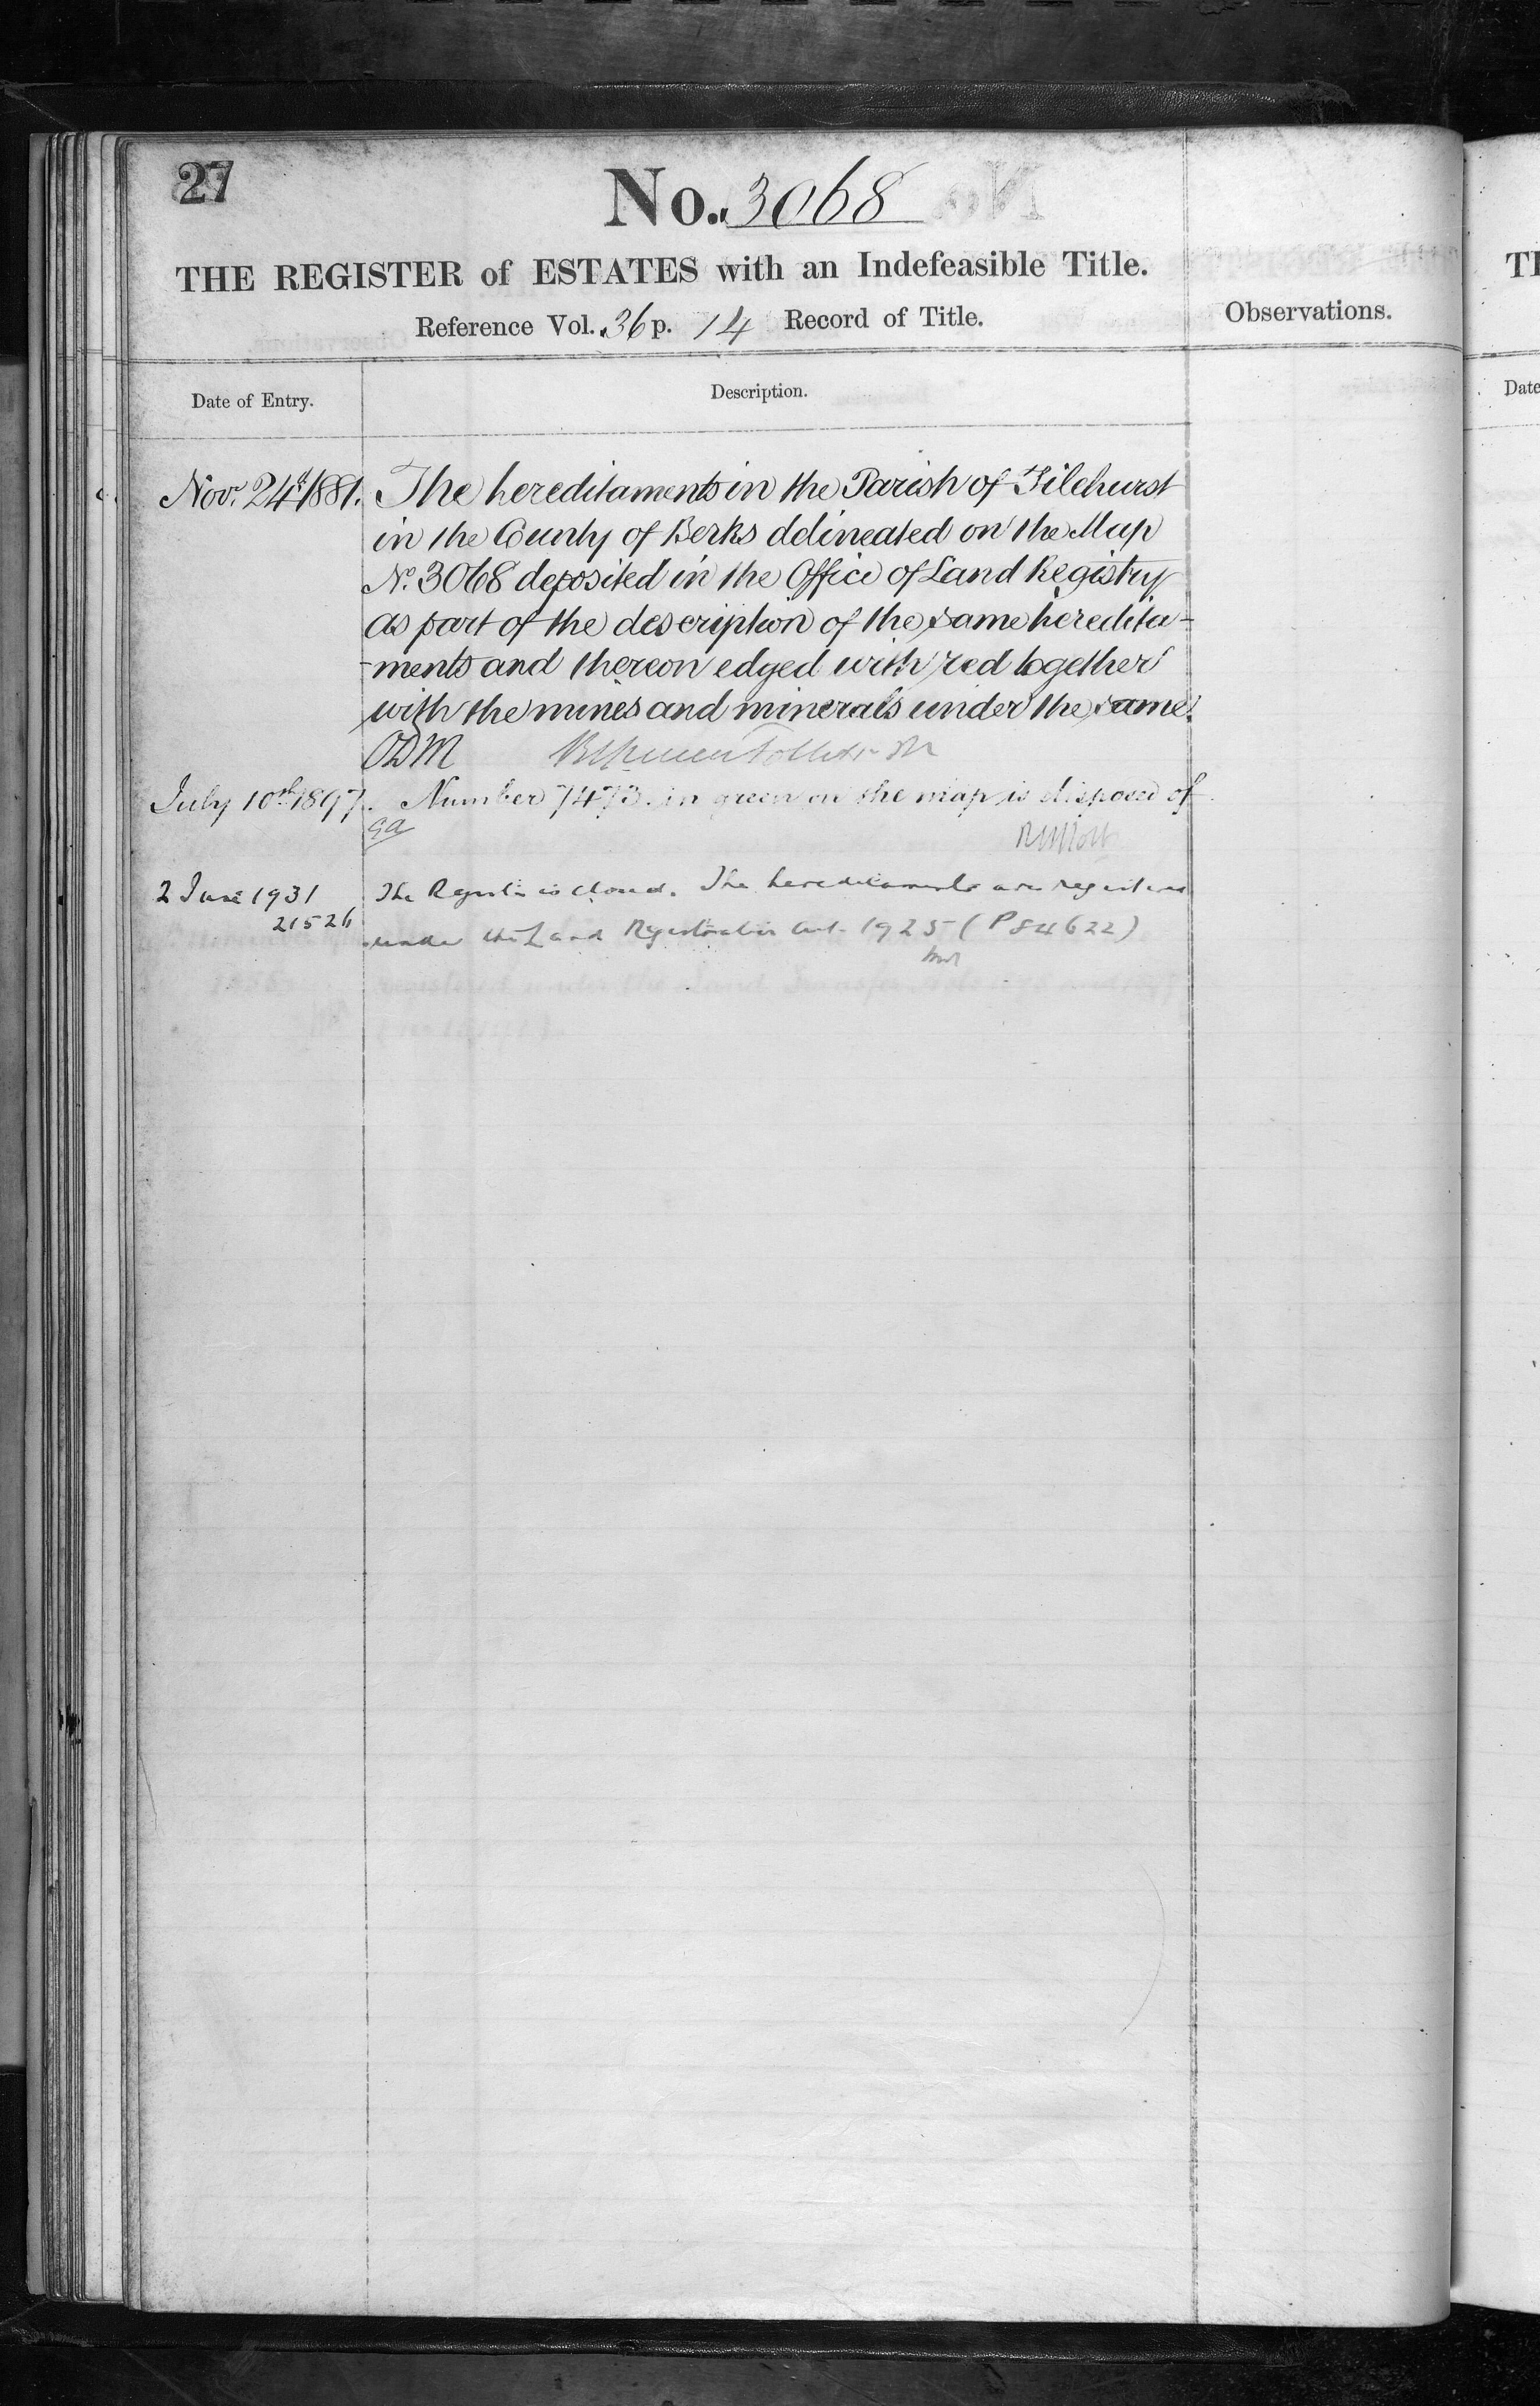 27
No. 3068
THE REGISTER of ESTATES with an Indefeasible Title.
Reference Vol. 36 p. 14 Record of Title.
Observations.
Date of Entry.
Description.
Novr. 24th 1881. The hereditaments in the Parish of Tilehurst
in the County of Berks delineated on the Map
No. 3068 deposited in the Office of Land Registry
as part of the description of the same heredita-
-ments and thereon edged with red together
with the mines and minerals under the same.
ODM
July 10th 1897. Number 7473 in green on the map is disposed of
GA
2 June 1931 The Register is closed. The hereditaments are registered
21526 under the Land Registration Act 1925 (P84622)
Date